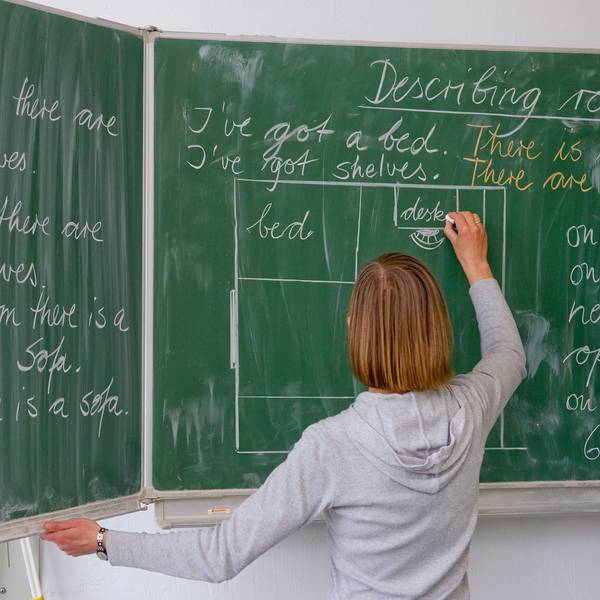 there are
there are
there is a
sofa.
is a sofa.
Describing
I've got a bed.
I've got shelves.
There is
There are
bed
desk
on
on
on